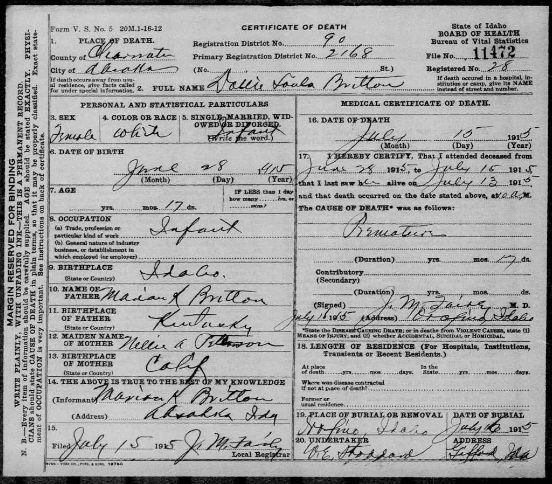 Form V. S. No. 5 20M.1-16-12
CERTIFICATE OF DEATH
State of Idaho
BOARD OF HEALTH
Bureau of Vital Statistics
1. PLACE OF DEATH.
County of Clearwater
City of Ahsahka
Registration District No. 90
Primary Registration District No. 2168
File No. 11472
Registered No. 28
(No. St.)
If death occurs away from usual residence, give facts called for under special information.
2. FULL NAME Dollie Loula Britton
If death occurred in a hospital, institution or camp, give its NAME instead of street and number.
PERSONAL AND STATISTICAL PARTICULARS
3. SEX
Female
4. COLOR OR RACE
White
5. SINGLE, MARRIED, WIDOWED OR DIVORCED.
Infant
(Write the word.)
6. DATE OF BIRTH
June 28 1915
(Month) (Day) (Year)
7. AGE
yrs. mos. 17 ds.
IF LESS than 1 day
how many hrs. or min.
8. OCCUPATION
(a) Trade, profession or particular kind of work
(b) General nature of industry, business, or establishment in which employed (or employer)
Infant
9. BIRTHPLACE
(State or Country)
Idaho.
10. NAME OF FATHER
Marion K Britton
11. BIRTHPLACE OF FATHER
(State or Country)
Kentucky
12. MAIDEN NAME OF MOTHER
Nellie A
13. BIRTHPLACE OF MOTHER
(State or Country)
Calif
14. THE ABOVE IS TRUE TO THE BEST OF MY KNOWLEDGE
(Informant) Marion K Britton
(Address) Ahsahka Ida
15.
Filed July 15 1915 J. M. Fairly
Local Registrar
MEDICAL CERTIFICATE OF DEATH.
16. DATE OF DEATH
July 15 1915
(Month) (Day) (Year)
17. I HEREBY CERTIFY, That I attended deceased from
June 28 1915, to July 15 1915
that I last saw her alive on July 13 1915
and that death occurred on the date stated above, at M.
The CAUSE OF DEATH* was as follows:
Premature
(Duration) yrs. mos. 17 ds.
Contributory
(Secondary)
(Duration) yrs. mos. ds.
(Signed) J. M. Fairly M. D.
July 1915 (Address) Orofino Idaho
*State the DISEASE CAUSING DEATH; or in deaths from VIOLENT CAUSES, state (1) MEANS OF INJURY; and (2) whether ACCIDENTAL, SUICIDAL or HOMICIDAL.
18. LENGTH OF RESIDENCE (For Hospitals, Institutions, Transients or Recent Residents.)
At place of death yrs. mos. days. In the State yrs. mos. ds.
Where was disease contracted
if not at place of death?
Former or
usual residence
19. PLACE OF BURIAL OR REMOVAL
Orofino, Idaho
DATE OF BURIAL
July 16 1915
20. UNDERTAKER
ADDRESS
Gifford, Ida
MARGIN RESERVED FOR BINDING
WRITE PLAINLY, WITH UNFADING INK—THIS IS A PERMANENT RECORD.
N. B.—Every item of information should be carefully supplied. AGE should be stated EXACTLY. PHYSICIANS should state CAUSE OF DEATH in plain terms, so that it may be properly classified. Exact statement of OCCUPATION is very important. See instructions on back of certificate.